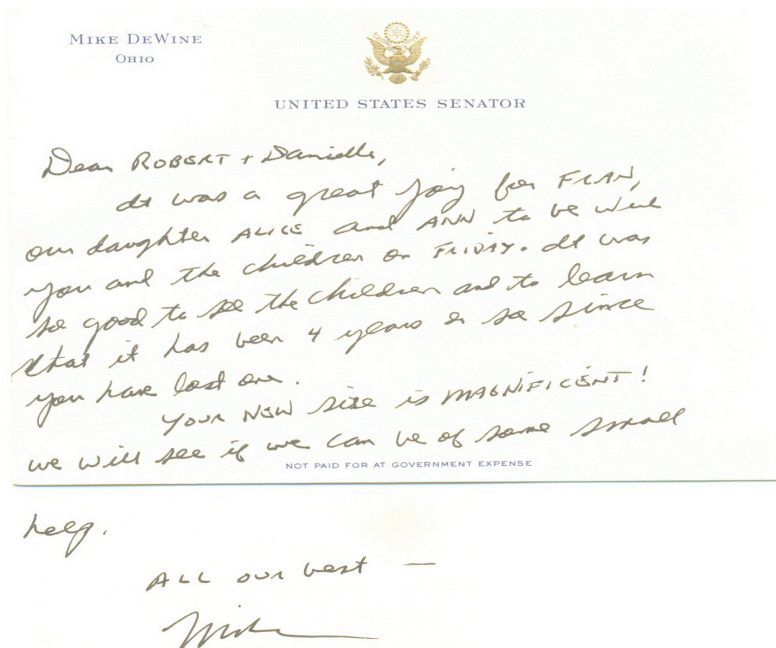 MIKE DEWINE
OHIO
UNITED STATES SENATOR
Dear ROBERT + Danielle,
It was a great joy for FRAN,
our daughter ALICE and ANN to be with
you and the children on FRIDAY. It was
so good to see the children and to learn
that it has been 4 years or so since
you have lost one.
YOUR NEW site is MAGNIFICENT!
we will see if we can be of some small
NOT PAID FOR AT GOVERNMENT EXPENSE
help.
ALL our best —
Mike